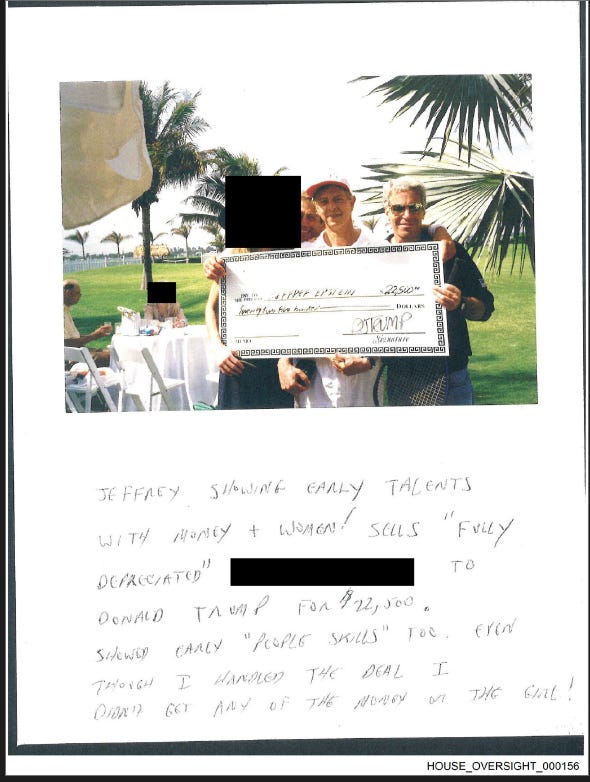 PAY TO
JEFFREY EPSTEIN $22,500
DOLLARS
DJTRUMP
MEMO
JEFFREY SHOWING EARLY TALENTS
WITH MONEY + WOMEN! SELLS "FULLY
DEPRECIATED" TO
DONALD TRUMP FOR $22,500.
SHOWED EARLY "PEOPLE SKILLS" TOO. EVEN
THOUGH I HANDLED THE DEAL I
DIDN'T GET ANY OF THE MONEY OR THE GIRL!
HOUSE_OVERSIGHT_000156